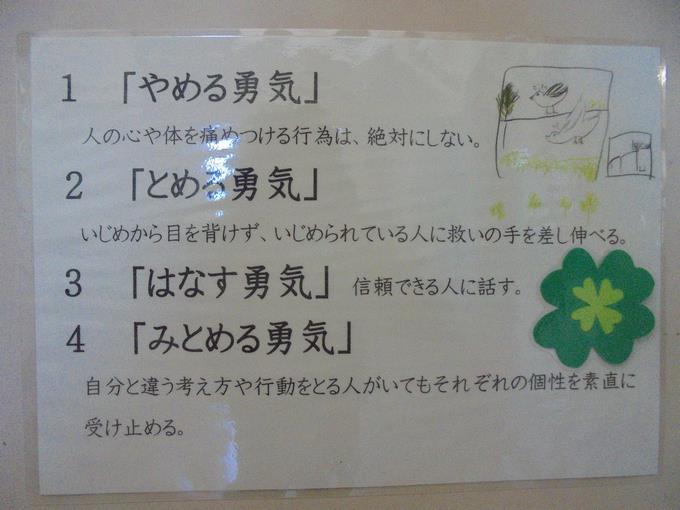 1 「やめる勇気」
人の心や体を痛めつける行為は、絶対にしない。
2 「とめる勇気」
いじめから目を背けず、いじめられている人に救いの手を差し伸べる。
3 「はなす勇気」 信頼できる人に話す。
4 「みとめる勇気」
自分と違う考え方や行動をとる人がいてもそれぞれの個性を素直に
受け止める。